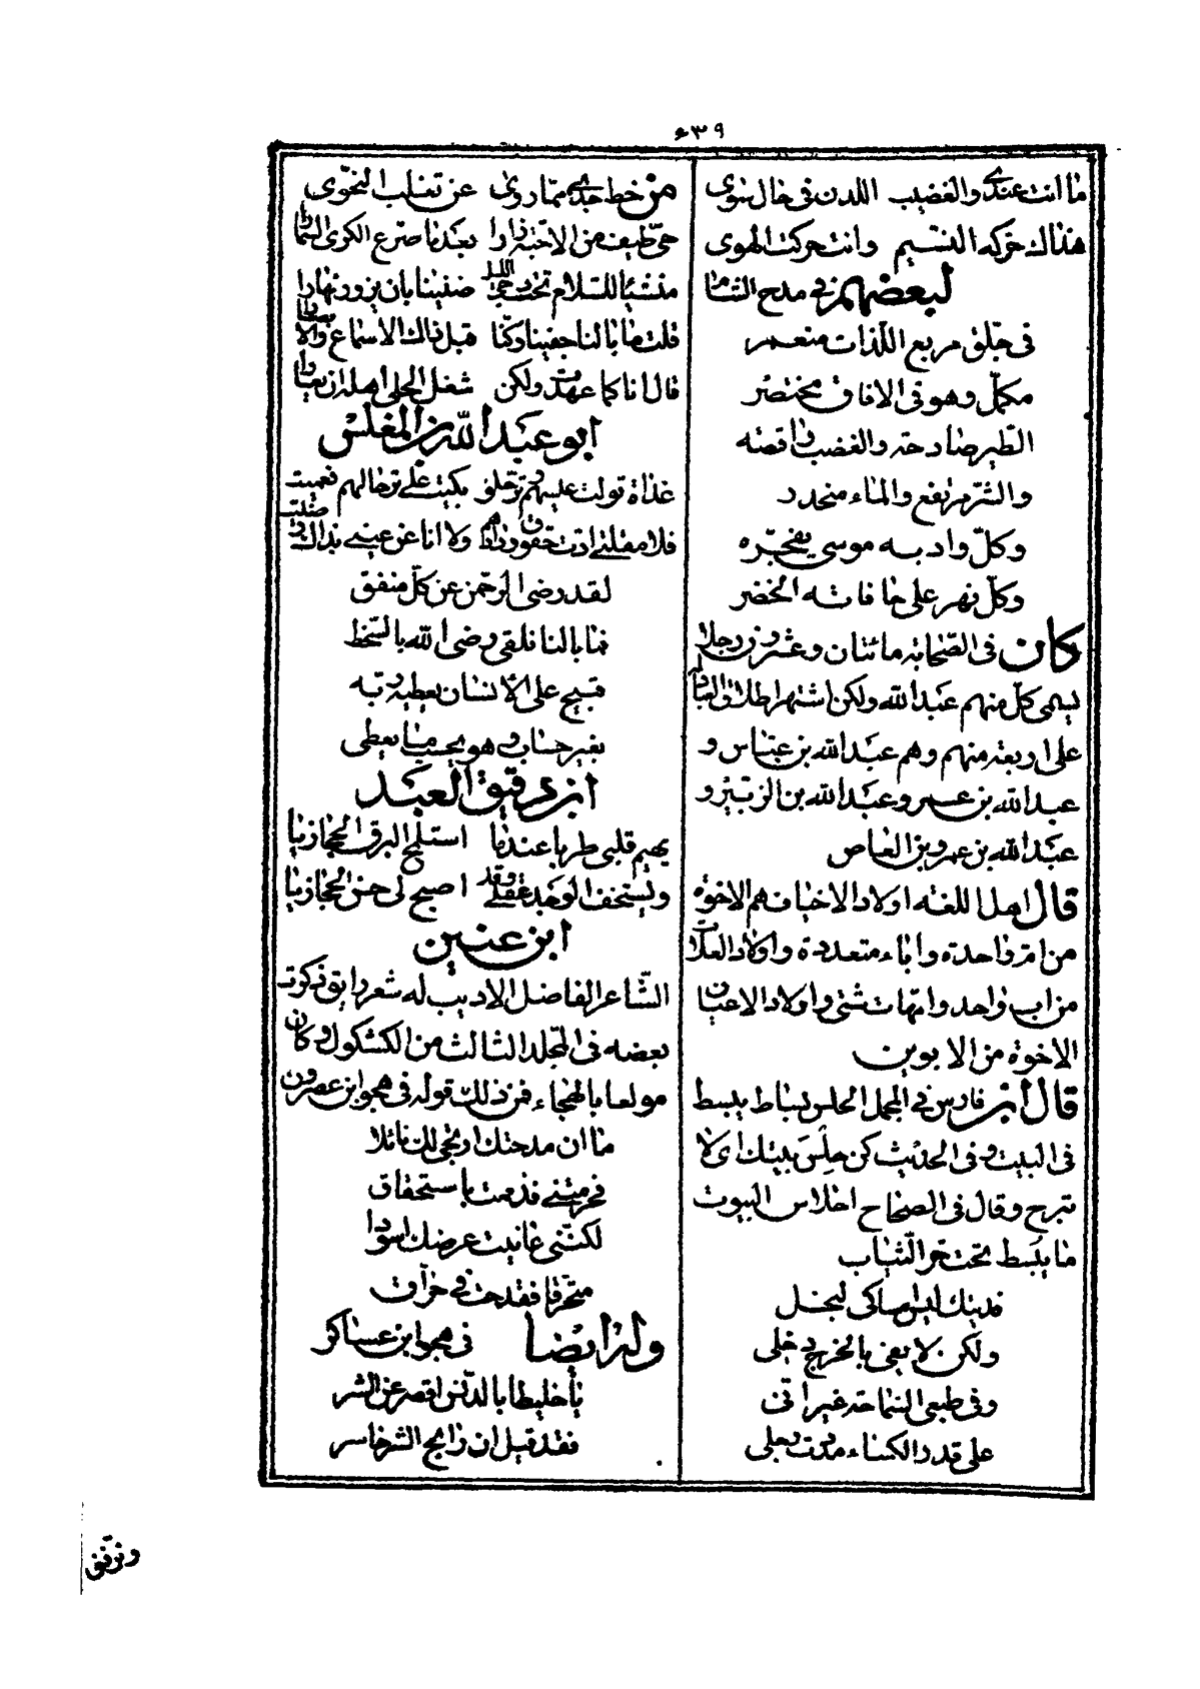 ٤٣٩
ما انت عندى والقضيب اللدن فى حال سوى
هذاك حركه النسيم وانت حركت الهوى
لبعضهم فى مدح الشام
فى جلق مربع اللذات منعمر
مكمل وهو فى الافاق مختصر
الطير صادحة والغضب راقصه
والنشر مرتفع والماء منحدر
وكل واد به موسى يفجره
وكل نهر على حافاته الخضر
كان فى الصحابة مائتان وعشرون رجلا
يسمى كل منهم عبد الله ولكن اشتهر اطلاق العبادله
على اربعة منهم وهم عبد الله بن عباس و
عبد الله بن عمر وعبد الله بن الزبير و
عبد الله بن عمرو بن العاص
قال اهل اللغه اولاد الاخياف هم الاخوة
من ام واحدة واباء متعددة واولاد العلات
من اب واحد وامهات شتى واولاد الاعيان
الاخوة من الابوين
قال ابن فارس فى المجمل الحلس بساط يبسط
فى البيت وفى الحديث كن حلس بيتك اى لا
تبرح وقال فى الصحاح احلاس البيوت
ما يبسط تحت حر الثياب
فديتك ليس امساكى لبخل
ولكن لا يفى بالخرج دخلى
وفى طبعى السماحة غير انى
على قدر الكساء مددت رجلى
من خط جدى مما روى عن تغلب النحوى
حى طيف من الاحبة زارا بعد ما صرع الكرى السمارا
منشيا للسلام تحت دجى الليل ضنينا بان يزور نهارا
قلت ما بالنا جفينا وكنا قبل ذاك الاسماع والابصارا
قال انا كما عهدت ولكن شغل الحلى اهله ان يعارا
ابو عبد الله بن المغلس
غداة تولت عيسهم فترحلوا بكيت على ترحالهم فعميت
فلا مقلتى ادت حقوق ودادهم ولا انا عن عينى بذاك رضيت
لقد رضى الرحمن عن كل منفق
فما بالنا نلقى رضى الله بالسخط
قبيح على الانسان يعطيه ربه
بغير حساب وهو يحسب ما يعطى
ابن دقيق العبد
يهيم قلبى طربا عندما استلمح البرق الحجازيا
ويستخف الوجد عقلى وقد اصبح لى حسن الحجازيا
ابن عنين
الشاعر الفاضل الاديب له شعر رايق ذكرت
بعضه فى المجلد الثالث من الكشكول وكان
مولعا بالهجاء فمن ذلك قوله فى هجو ابن عصرون
ما ان مدحتك ارتجى لك نائلا
فحرمتنى فذممت باستحقاق
لكننى عاينت عرضك اسودا
متحرقا فقدحت فى حراق
وله ايضا فى هجو ابن عساكر
يا خليطا بالدنس اقصر عن الشر
فقد قيل ان رابح الشر خاسر
وترفق